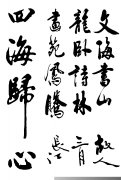 文海書山
龍卧詩林
畫苑鳳騰
四海歸心
三月
長江